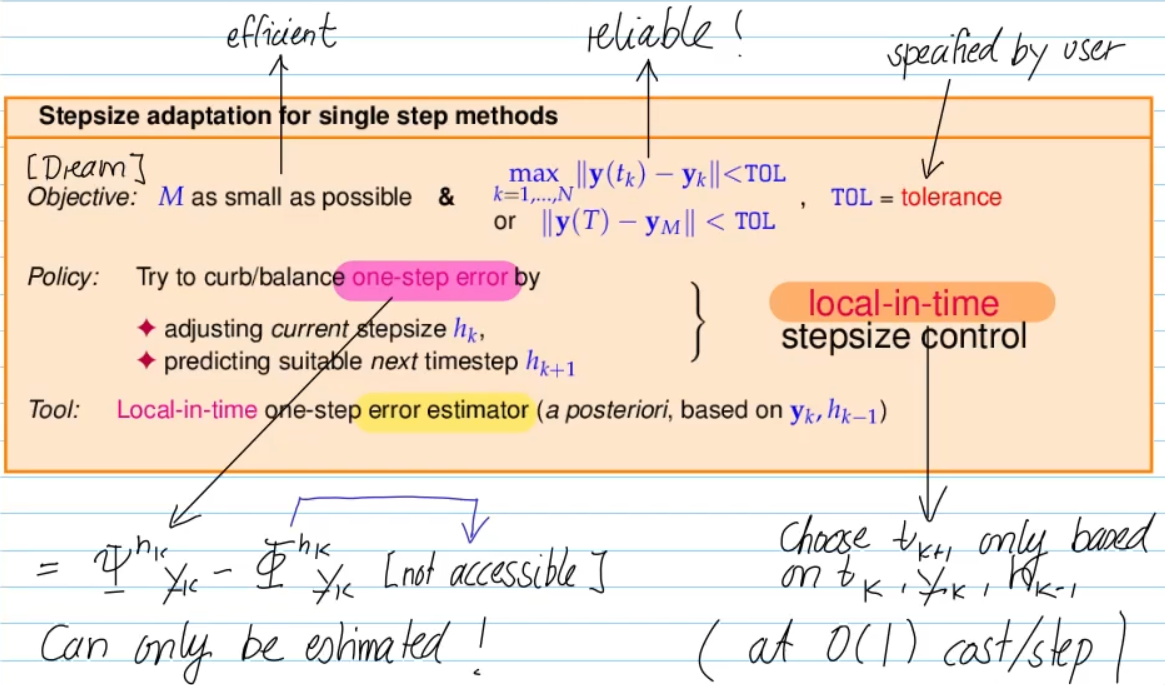 efficient
reliable !
specified by user
Stepsize adaptation for single step methods
[Dream]
Objective: M as small as possible & max ‖y(t_k) − y_k‖<TOL , TOL = tolerance
k=1,...,N
or ‖y(T) − y_M‖ < TOL
Policy: Try to curb/balance one-step error by
✦ adjusting current stepsize h_k,
✦ predicting suitable next timestep h_{k+1}
} local-in-time
stepsize control
Tool: Local-in-time one-step error estimator (a posteriori, based on y_k, h_{k−1})
= Ψ^{h_k} y_k - Φ^{h_k} y_k [not accessible]
Can only be estimated !
Choose t_{k+1} only based
on t_k, y_k, h_{k-1}
( at O(1) cost/step )